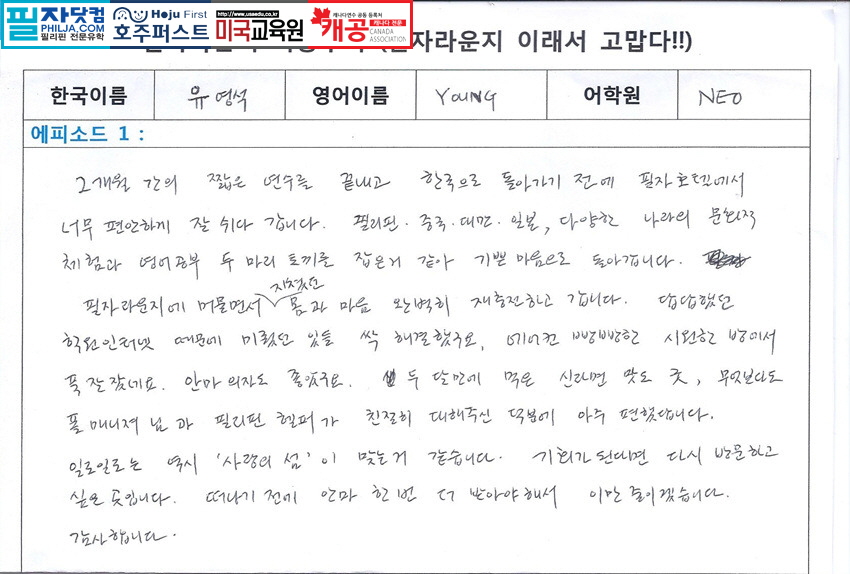 필자닷컴 Hoju First www.usaedu.co.kr 캐나다연수 공동 등록처
PHILJA.COM 호주퍼스트 미국교육원 캐공 캐나다 전문
필리핀 전문유학 CANADA ASSOCIATION
자라운지 이래서 고맙다!!)
한국이름 유영석 영어이름 YOUNG 어학원 NEO
에피소드 1 :
2개월 간의 짧은 연수를 끝내고 한국으로 돌아가기 전에 필자호텔에서
너무 편안하게 잘 쉬다 갑니다. 필리핀·중국·대만·일본, 다양한 나라의 문화적
체험과 영어공부 두 마리 토끼를 잡은거 같아 기쁜 마음으로 돌아갑니다.
필자라운지에 머물면서 지쳤던 몸과 마음 완벽히 재충전하고 갑니다. 답답했던
학원인터넷 때문에 미뤘던 일들 싹 해결했구요, 에어컨 빵빵한 시원한 방에서
푹 잘잤네요. 안마의자도 좋았구요. 두 달만에 먹은 신라면 맛도 굿, 무엇보다도
폴 매니져 님과 필리핀 헬퍼가 친절히 대해주신 덕분에 아주 편했답니다.
일로일로는 역시 '사랑의 섬'이 맞는거 같습니다. 기회가 된다면 다시 방문하고
싶은 곳입니다. 떠나기 전에 안마 한번 더 받아야해서 이만 줄이겠습니다.
감사합니다.